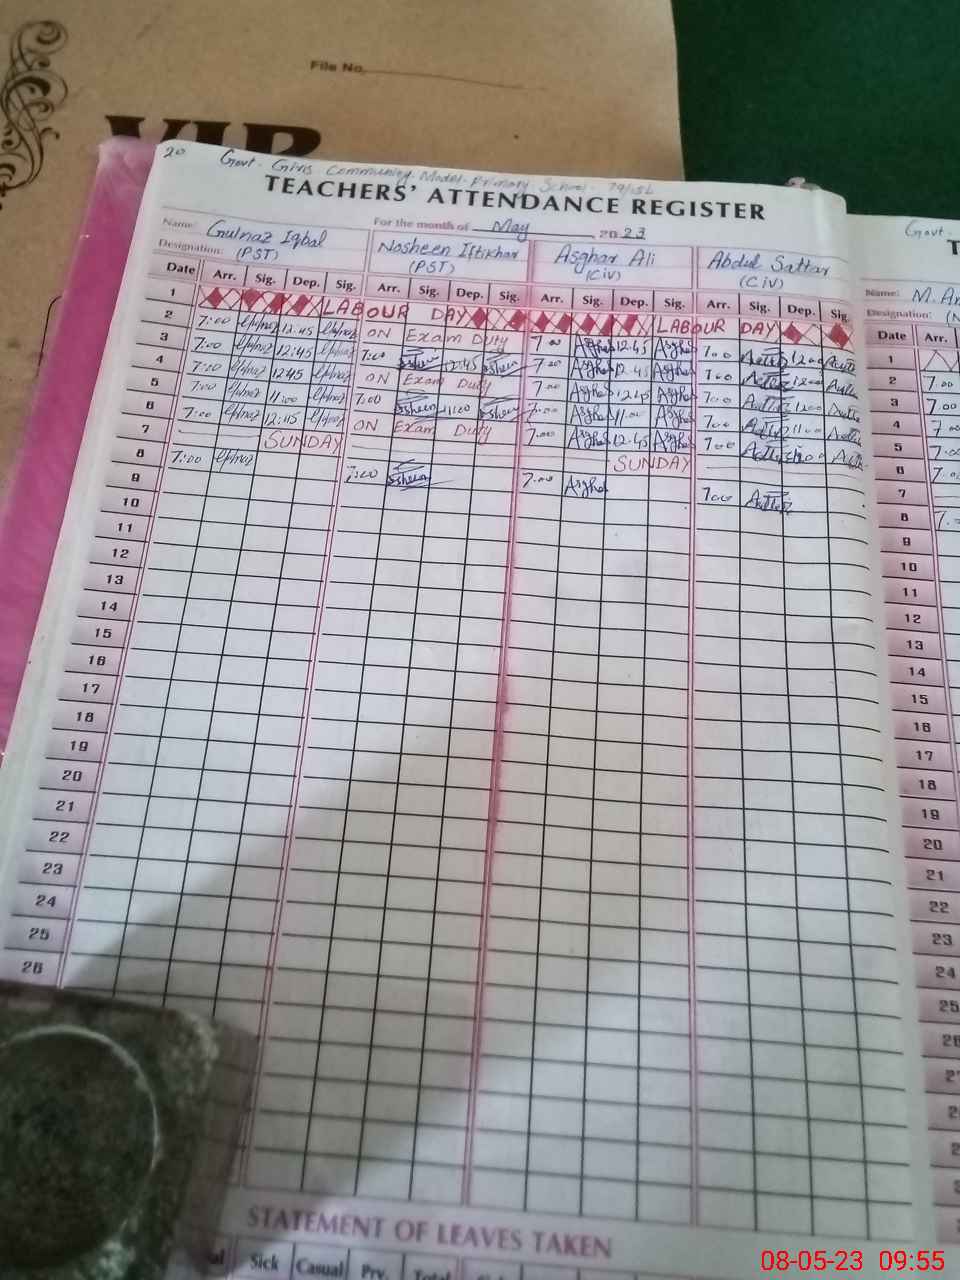 File No.
VIP
20 Govt. Girls Community Model Primary School 79/15L
TEACHERS' ATTENDANCE REGISTER
For the month of May 2023
Name: Gulnaz Iqbal Nosheen Iftikhar Asghar Ali Abdul Sattar
Designation: (PST) (PST) (Civ) (Civ)
Date Arr. Sig. Dep. Sig. Arr. Sig. Dep. Sig. Arr. Sig. Dep. Sig. Arr. Sig. Dep. Sig.
1 LABOUR DAY LABOUR DAY
2 7:00 12:45 ON Exam Duty 7:00 Asghar 12:45 Asghar 7:00 12:00
3 7:00 12:45 7:00 12:45 7:00 Asghar 12:45 Asghar 7:00 12:00
4 7:00 12:45 ON Exam Duty 7:00 Asghar 12:45 Asghar 7:00 12:00
5 7:00 11:00 7:00 11:00 7:00 Asghar 11:00 Asghar 7:00 11:00
6 7:00 12:45 ON Exam Duty 7:00 Asghar 12:45 Asghar 7:00
7 SUNDAY SUNDAY
8 7:00 7:00 7:00 Asghar 7:00
9
10
11
12
13
14
15
16
17
18
19
20
21
22
23
24
25
26
STATEMENT OF LEAVES TAKEN
Sick Casual Prv. Total
Govt.
T
Name: M.
Designation:
Date Arr.
1
2 7.00
3 7.00
4 7.00
5 7.00
6 7.00
7
8 7.
9
10
11
12
13
14
15
16
17
18
19
20
21
22
23
24
25
26
08-05-23 09:55